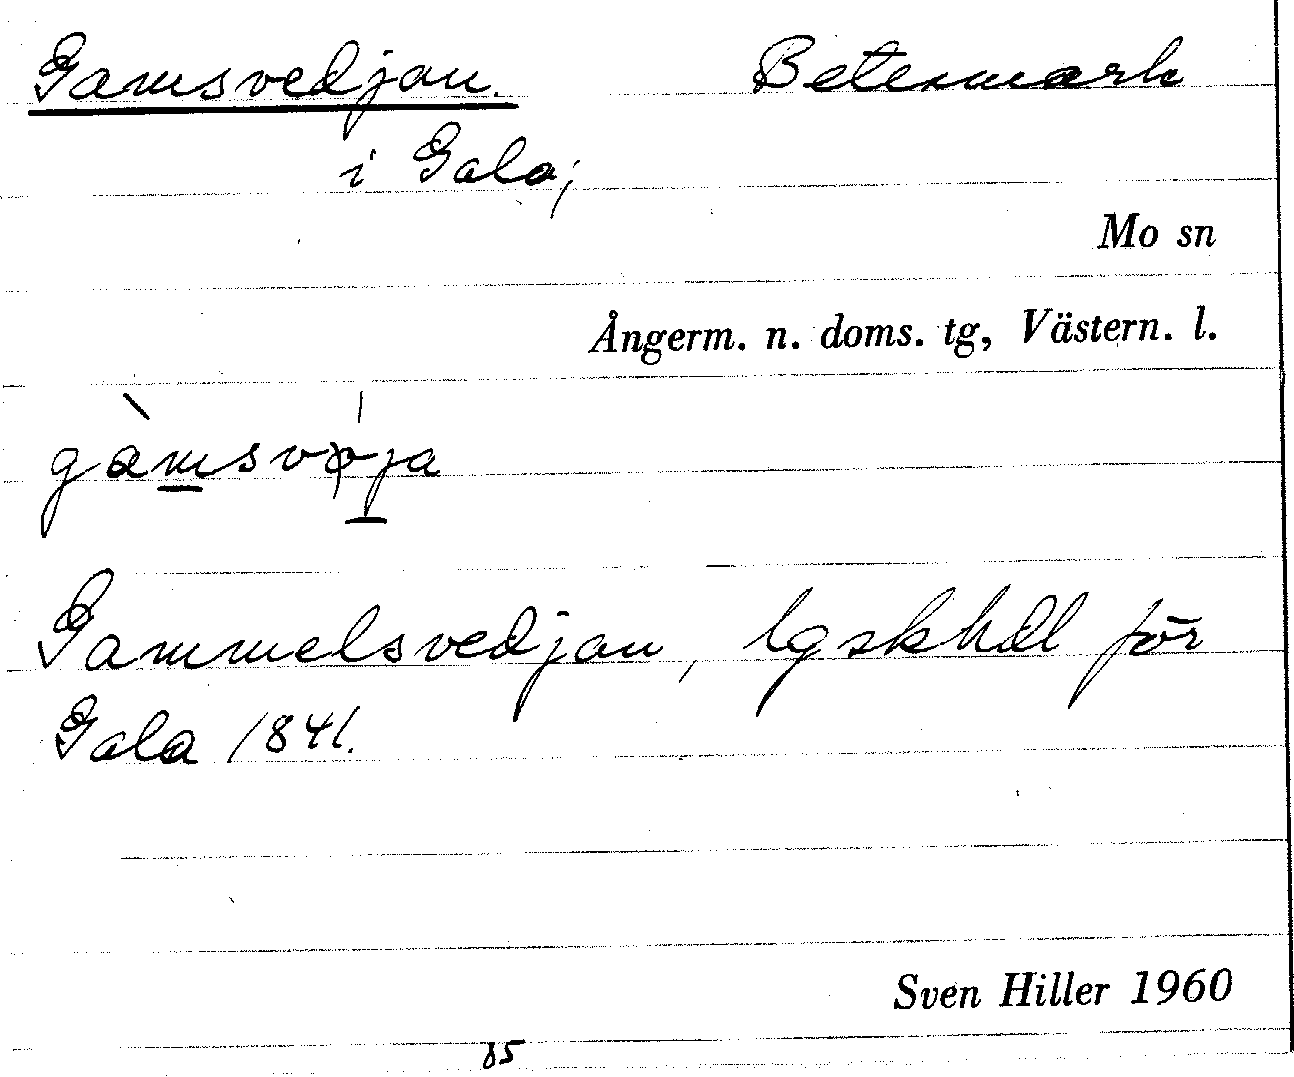 Gamsvedjan. Betesmark
i Gala;
Mo sn
Ångerm. n. doms. tg, Västern. l.
Gammelsvedjan, lgskhdl för
Gala 1841.
Sven Hiller 1960
85